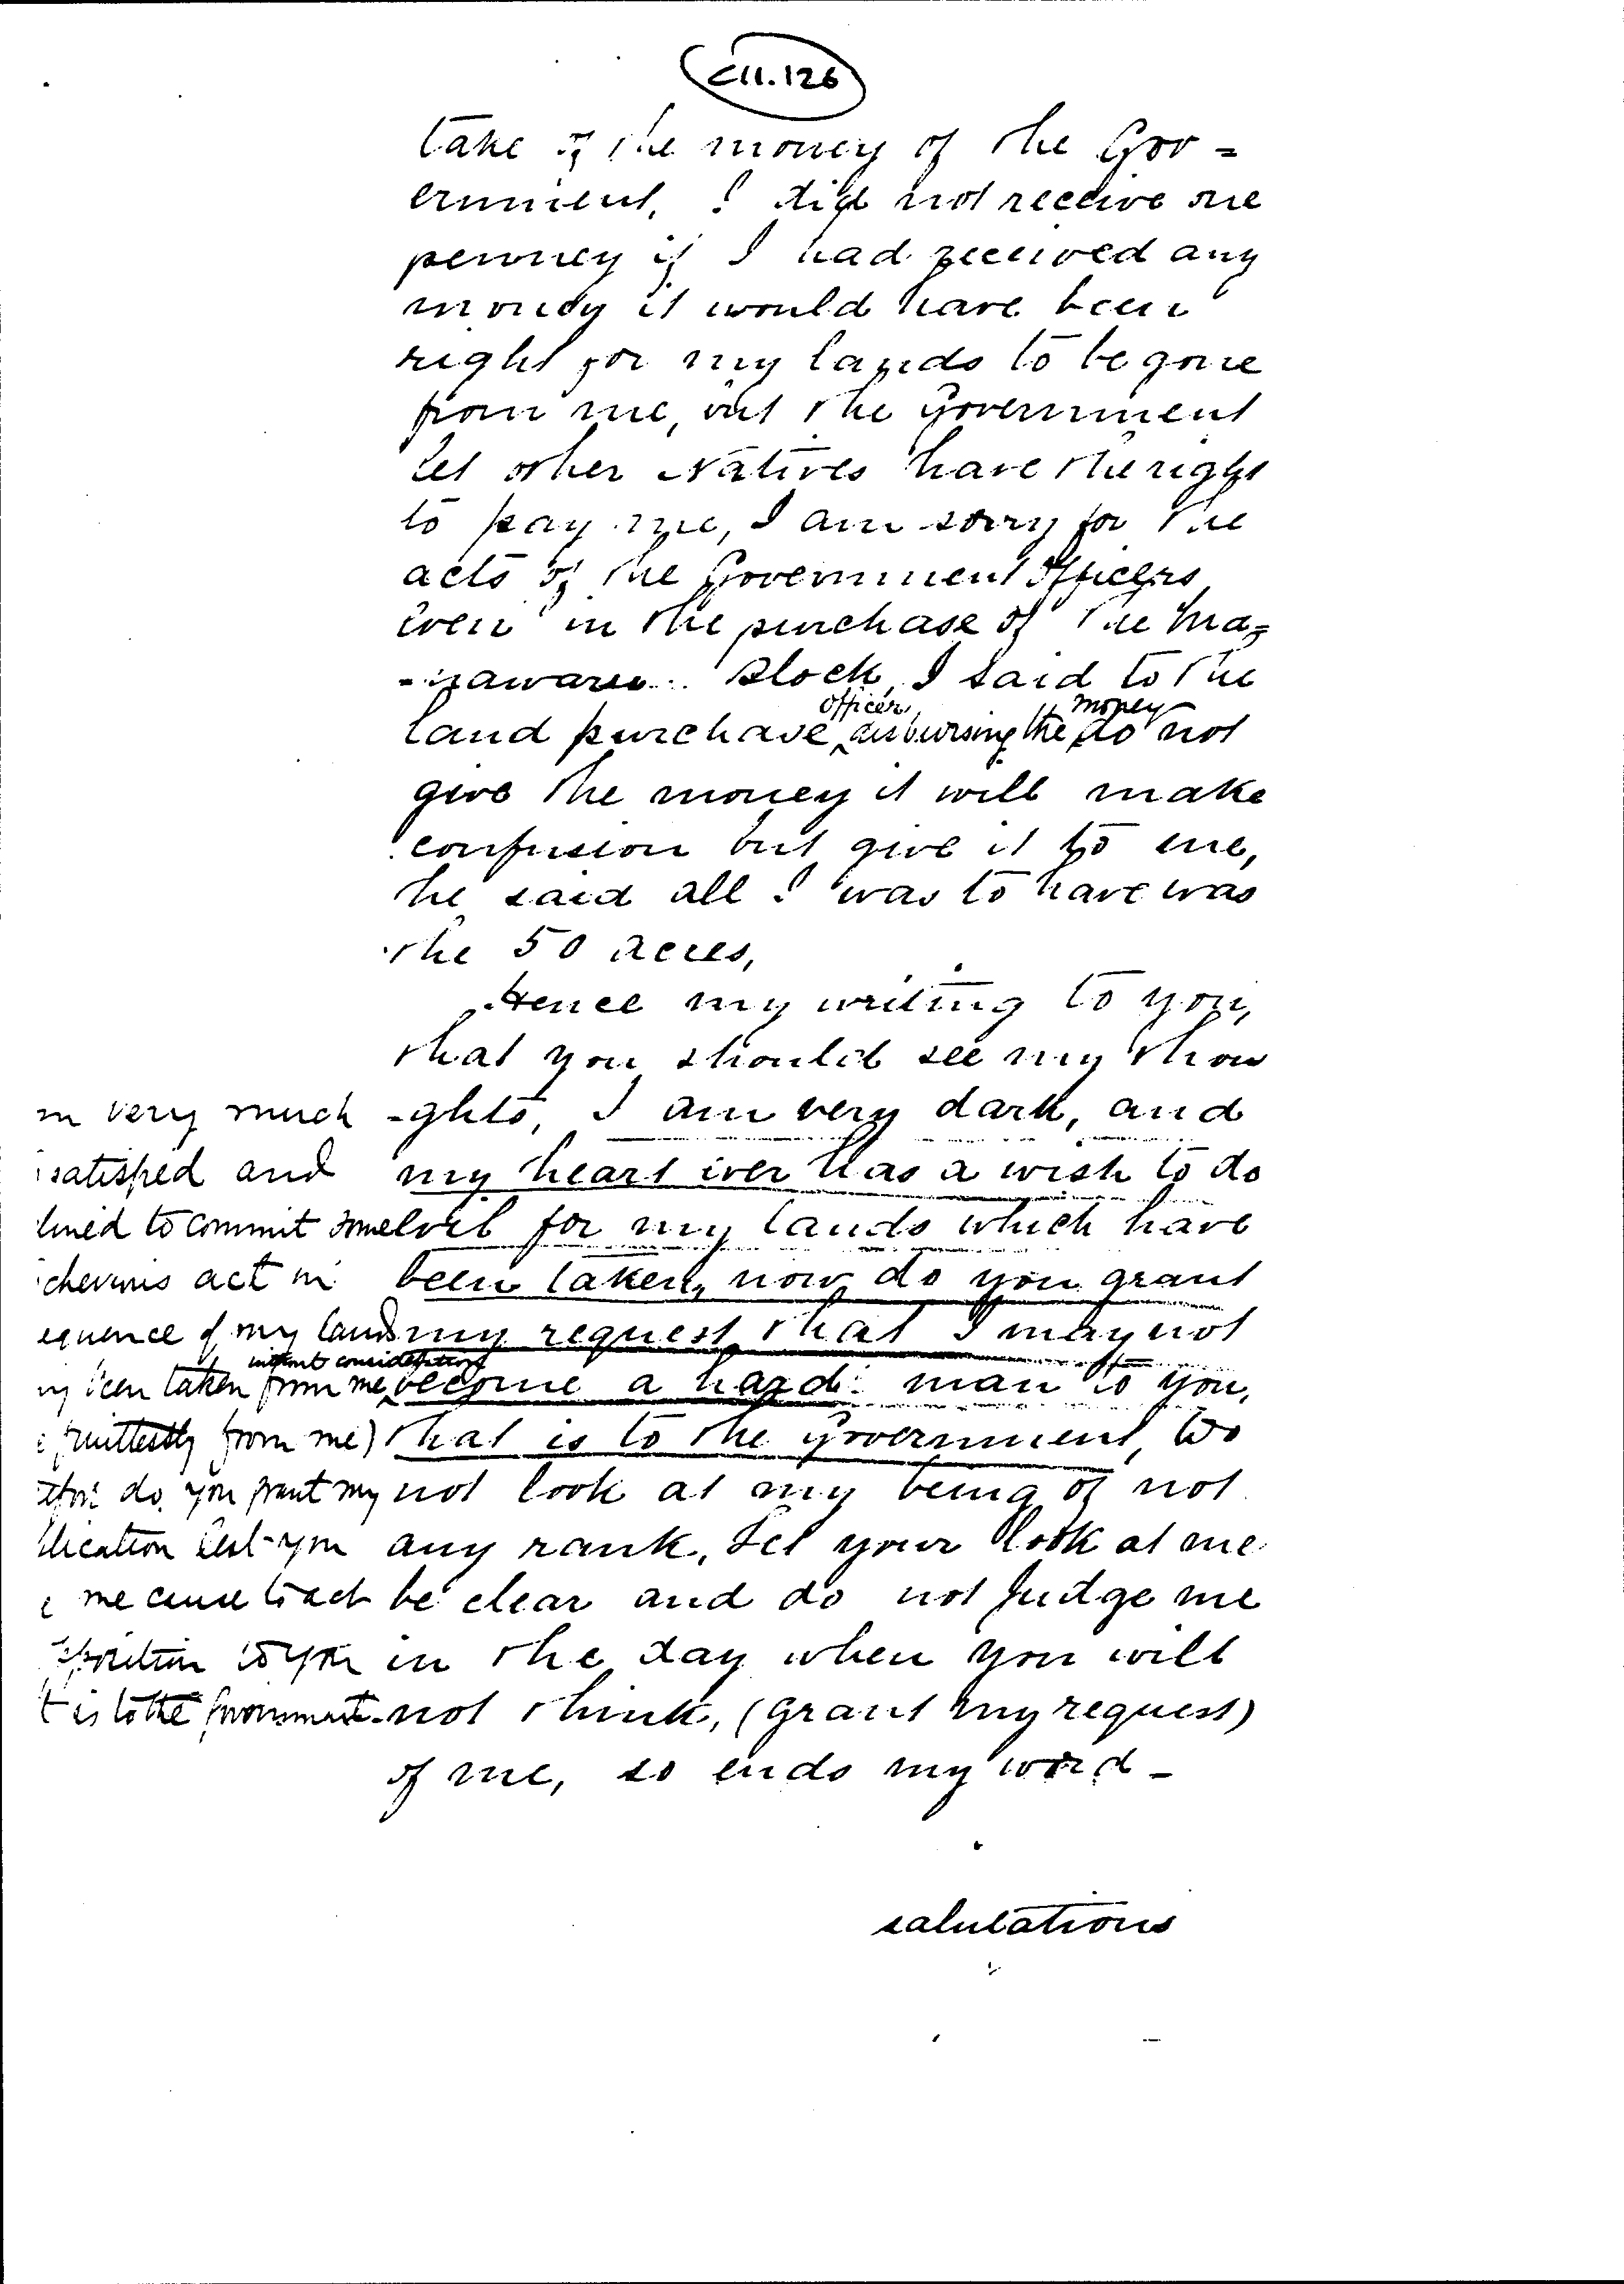 C11.126
take of the money of the Gov=
ernment, I did not receive one
penney if I had received any
money it would have been
right for my lands to be gone
from me, but the Government
let other Natives have the right
to pay me, I am sorry for the
acts of the Government Officers
even in the purchase of the Ma=
Block, I said to the
officer money
land purchase disbursing the do not
give the money it will make
confusion but give it to me,
he said all I was to have was
the 50 acres,
Hence my writing to you,
that you should see my thou
-ghts, I am very dark, and
my heart ever has a wish to do
evil for my lands which have
been taken, now do you grant
my request that I may not
become a hard man to you,
that is to the Government, do
not look at my being of not
any rank, Let your look at me
be clear and do not Judge me
in the day when you will
not think, (grant my request)
of me, so ends my word -
salutations
m very much
satisfied and
lined to commit some
chevous act in
equence of my lands
without consideration
ng been taken from me
fruitlessly from me)
do you grant my
lication lest you
me cause to act
position to you
t is to the Government